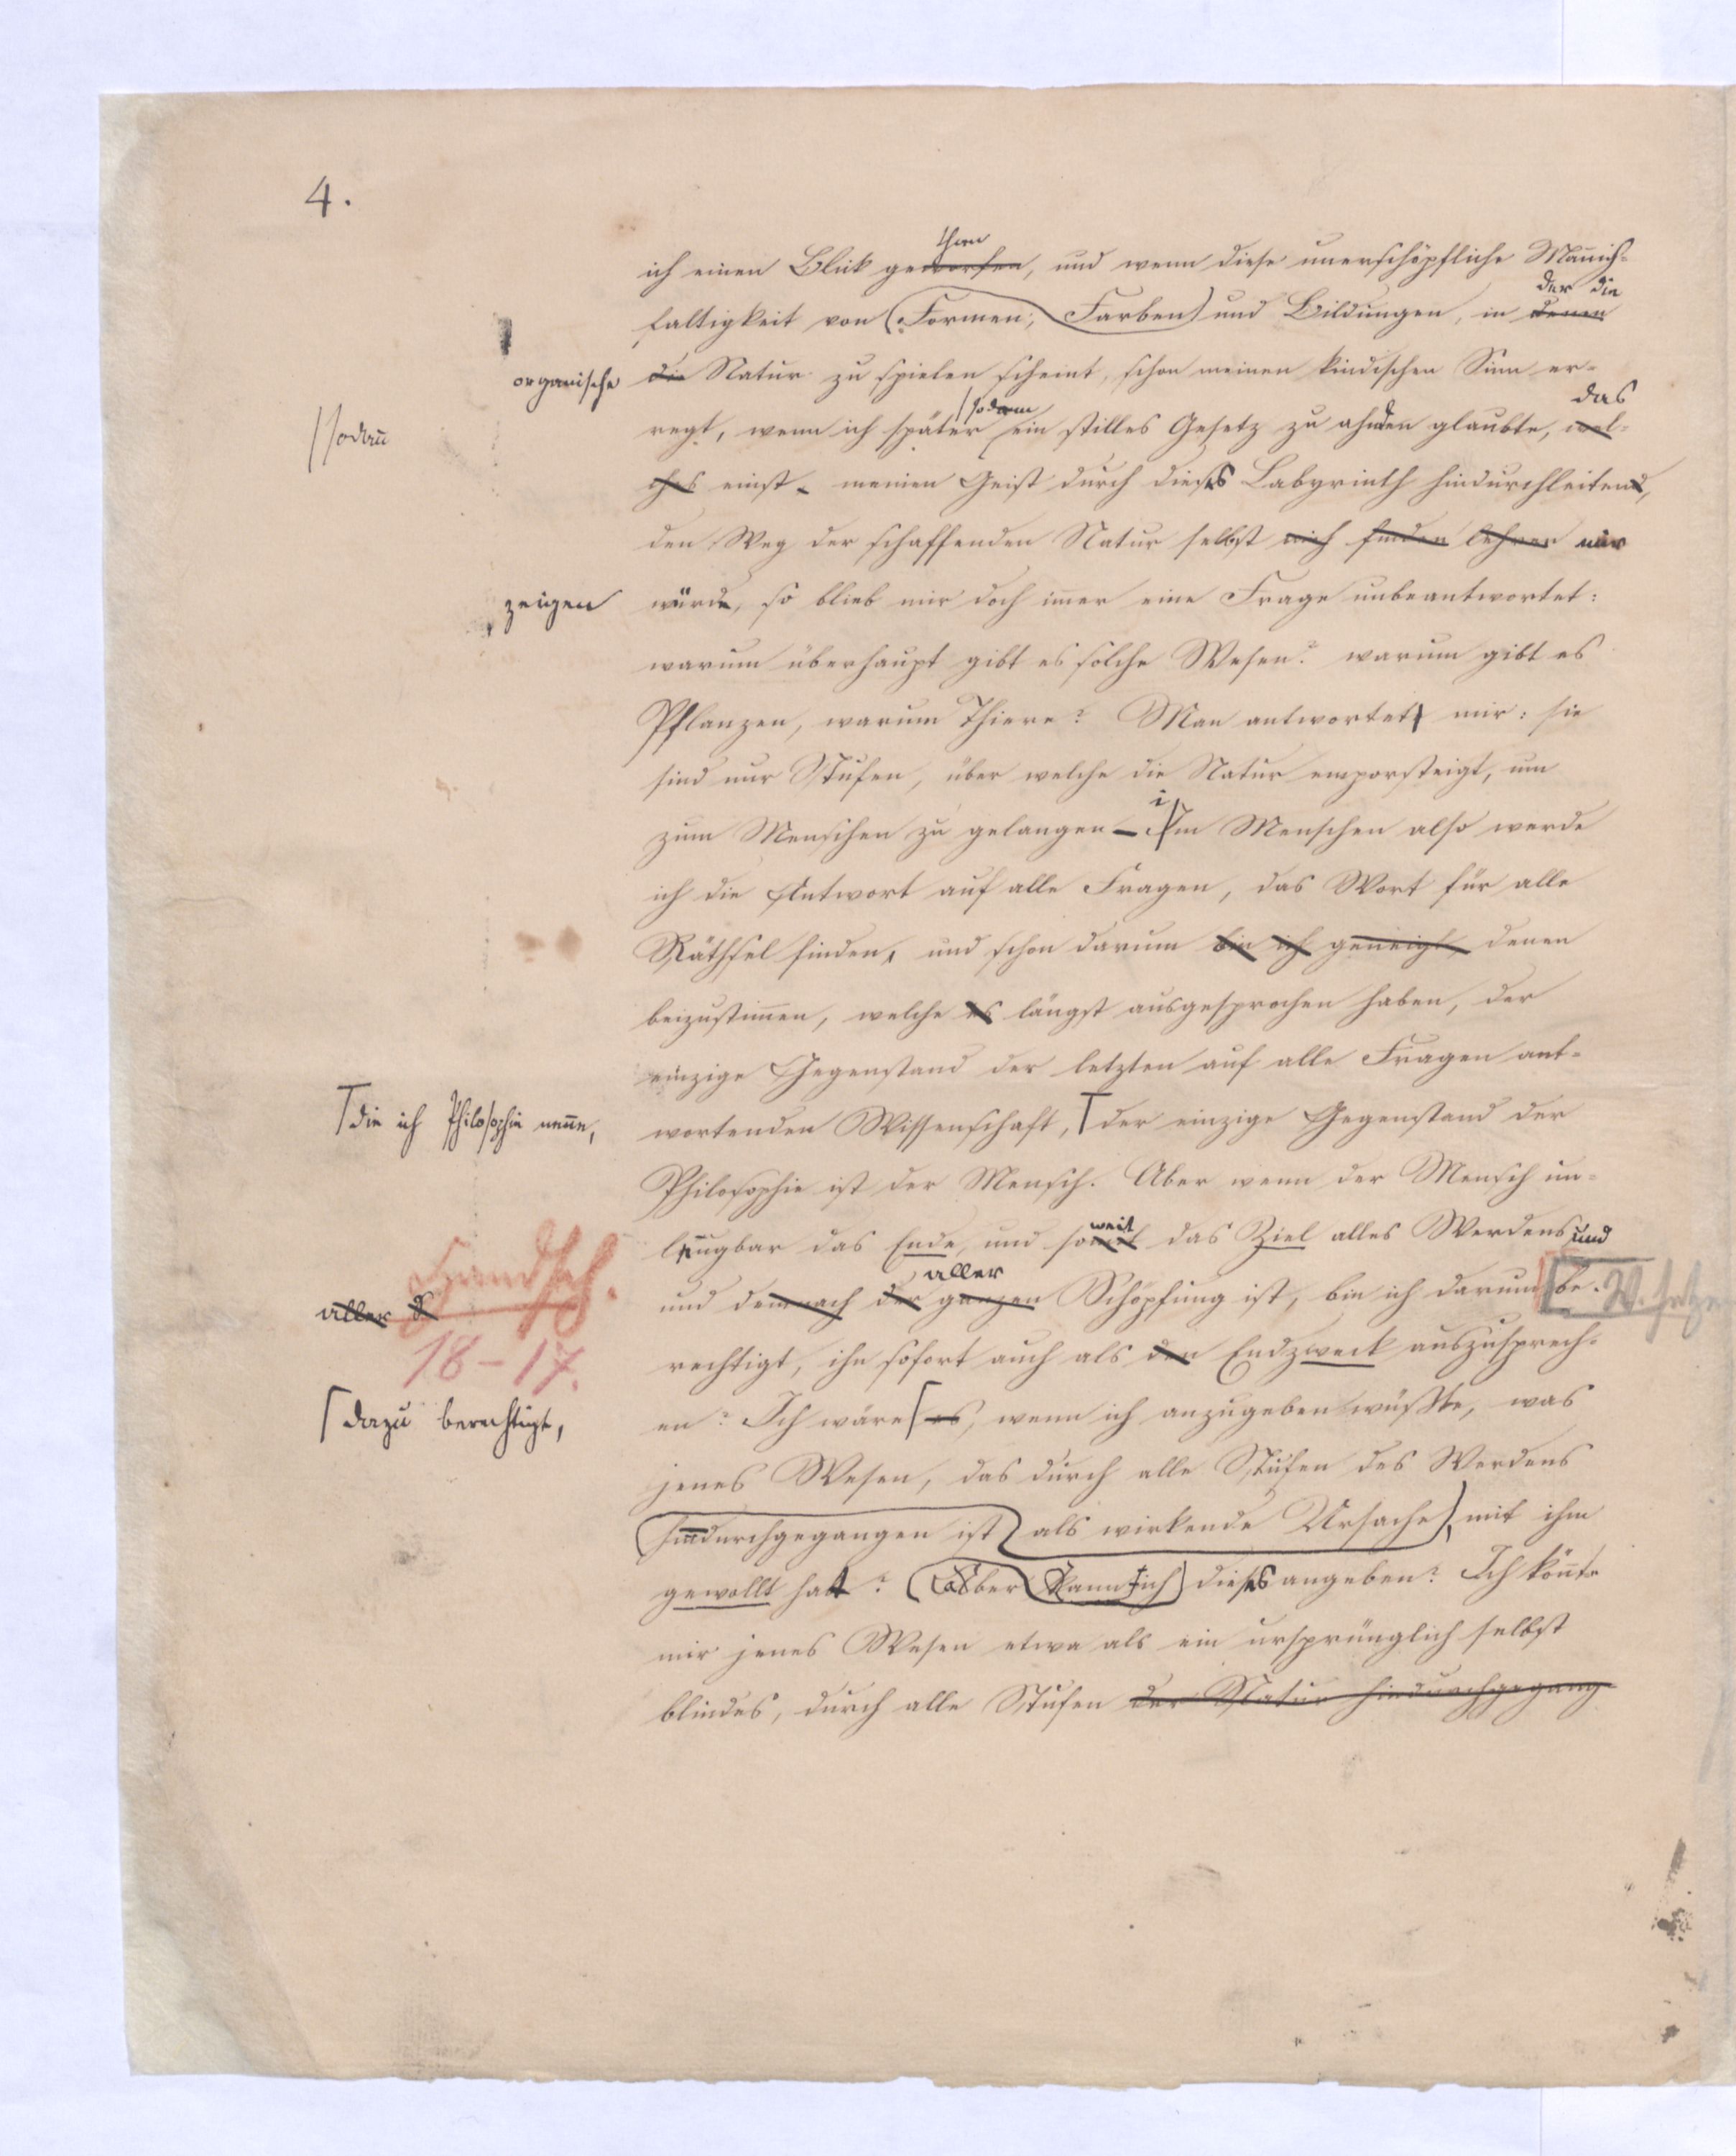 4.
than
ich einen Blick geworfen, und wenn diese unerschöpfliche Mannich-
der die
faltigkeit von (Formen, Farben) und Bildungen, in denen
organische die Natur zu spielen scheint, schon meinen kindischen Sinn er-
sodann das
sodann̄ regt, wenn ich später ein stilles Gesetz zu ahnden glaubte, wel-
ches einst meinen Geist durch dieses Labyrinth hindurchleitend,
den Weg der schaffenden Natur selbst mich finden lehren mir
zeigen würde, so blieb mir doch im̄er eine Frage unbeantwortet:
warum überhaupt gibt es solche Wesen? warum gibt es
Pflanzen, warum Thiere? Man antwortet mir: sie
sind nur Stufen, über welche die Natur emporsteigt, um
i
zum Menschen zu gelangen – Im Menschen also werde
ich die Antwort auf alle Fragen, das Wort für alle
Räthsel finden, und schon darum bin ich geneigt, denen
beizustim̄en, welche es längst ausgesprochen haben, der
einzige Gegenstand der letzten auf alle Fragen ant-
die ich Philosophie nen̄e, wortenden Wissenschaft, der einzige Gegenstand der
Philosophie ist der Mensch. Aber wenn der Mensch un-
weit
leugbar das Ende, und somit das Ziel alles Werdens und
Handsch.
aller
aller d und demnach der ganzen Schöpfung ist, bin ich darum be-
18-17.
rechtigt, ihn sofort auch als den Endzweck auszusprech-
dazu berechtigt, en? Ich wäre es, wenn ich anzugeben wüßte, was
jenes Wesen, das durch alle Stufen des Werdens
hindurchgegangen ist als wirkende Ursache, mit ihm
gewollt hat? (aber kann ich) dieses angeben? Ich kön̄te
mir jenes Wesen etwa als ein ursprünglich selbst
blindes, durch alle Stufen der Natur hindurchgegang